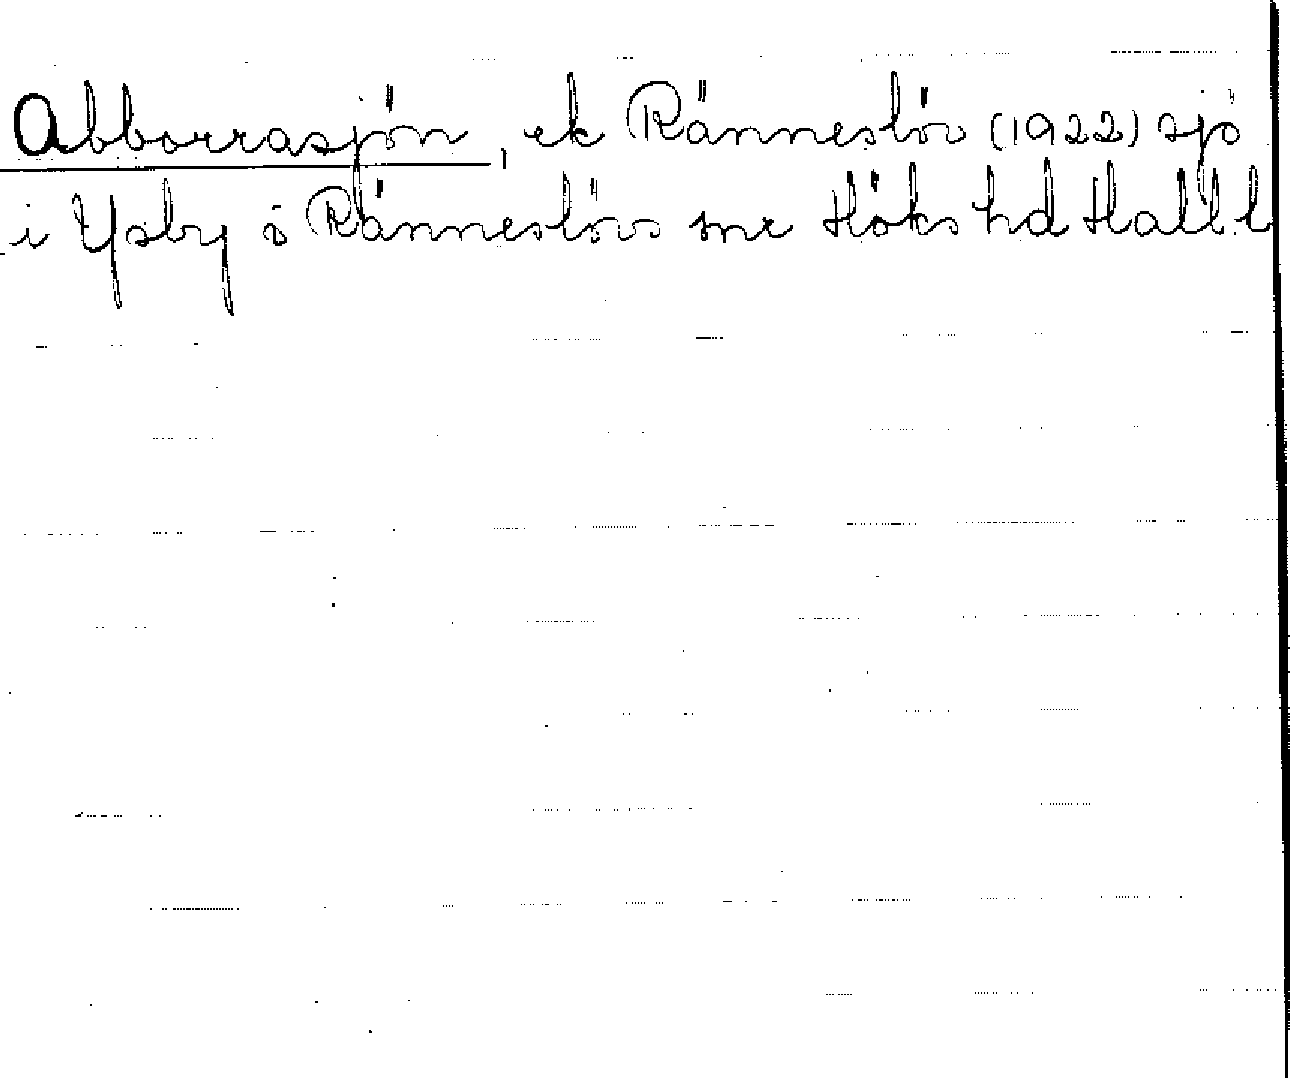 Abborrasjön, ek Ränneslöv (1922) sjö
i Ysby o Ränneslövs snr Höks hd Hall l